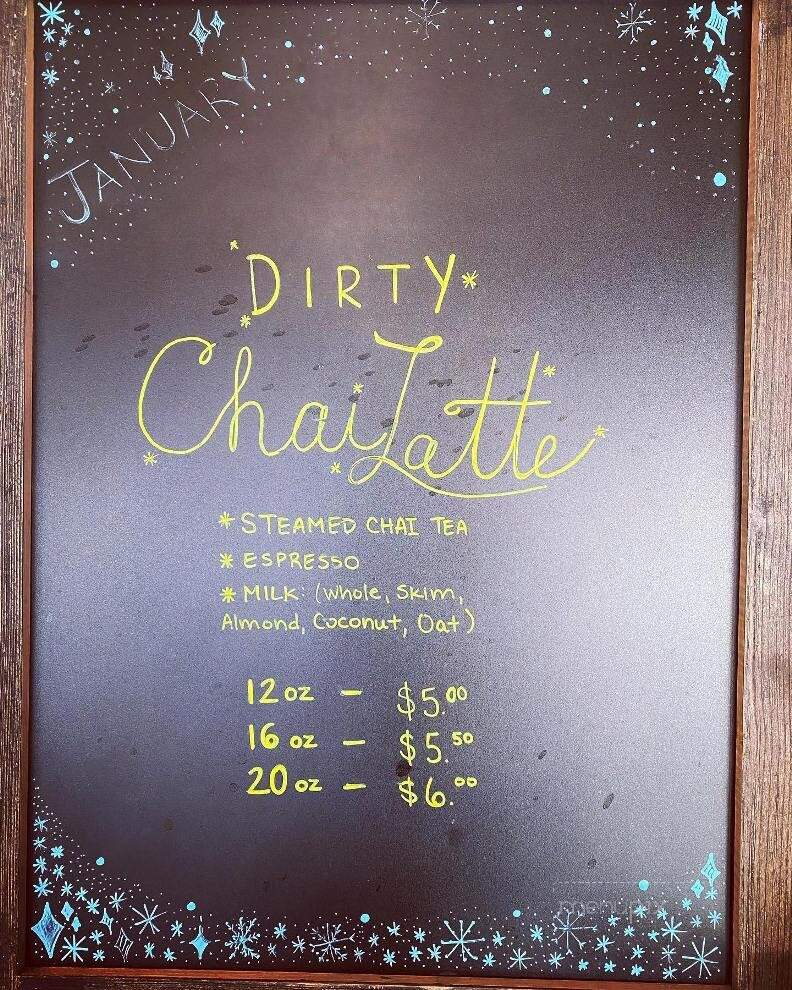 JANUARY
DIRTY
Chai Latte
* STEAMED CHAI TEA
* ESPRESSO
* MILK: (Whole, Skim,
Almond, Coconut, Oat)
12 oz - $5.00
16 oz - $5.50
20 oz - $6.00